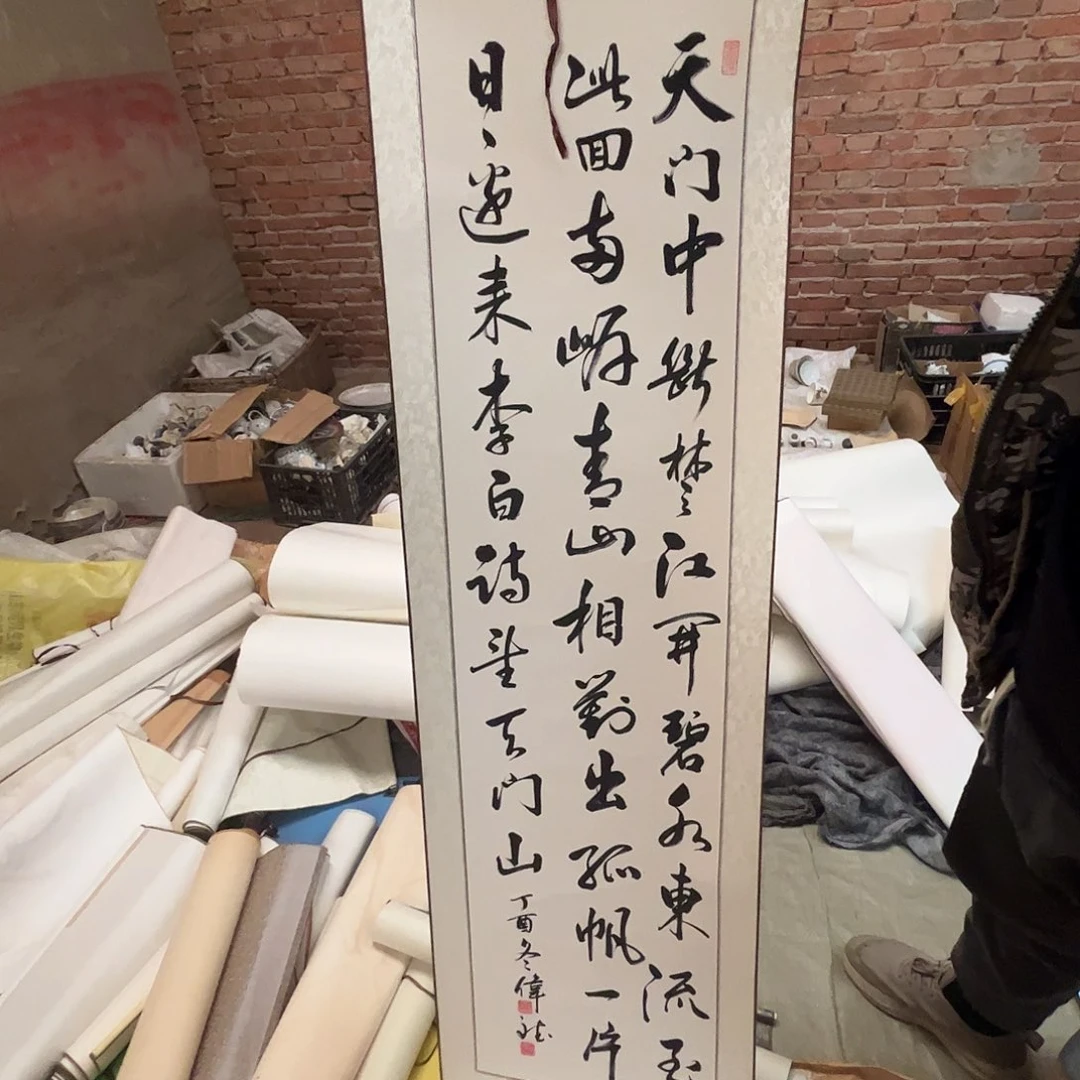 天门中断楚江開碧水東流至
此回两岸青山相對出孤帆一片
日、邊来李白詩望天门山
丁酉冬偉